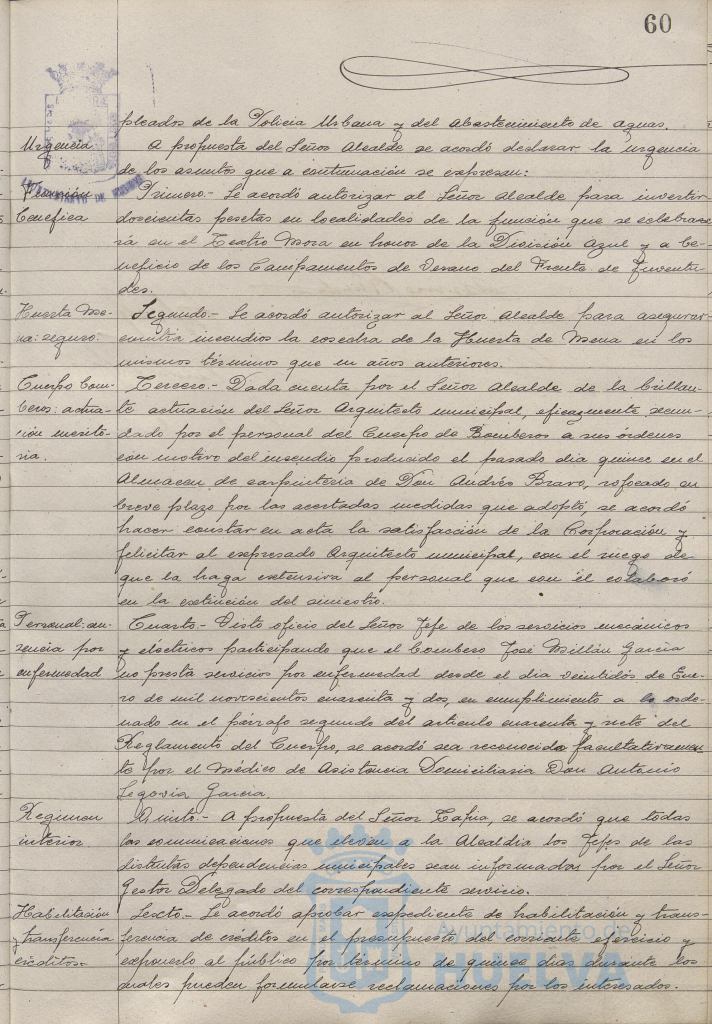 60
pleados de la Policia Urbana y del Abastecimiento de aguas.
Urgencia
A propuesta del Señor Alcalde se acordó declarar la urgencia
de los asuntos que a continuación se expresan:
Función
Benéfica
Primero.- Se acordó autorizar al Señor Alcalde para invertir
doscientas pesetas en localidades de la función que se celebra
rá en el Teatro Mora en honor de la División Azul y a be-
neficio de los Campamentos de Verano del Frente de Juventu-
des.
Huerta Me-
na: seguro.
Segundo.- Se acordó autorizar al Señor Alcalde para asegurar
contra incendios la cosecha de la Huerta de Mena en los
mismos términos que en años anteriores.
Cuerpo Bom-
beros: actua-
ción merito-
ria.
Tercero.- Dada cuenta por el Señor Alcalde de la brillan-
te actuación del Señor Arquitecto municipal, eficazmente secun-
dado por el personal del Cuerpo de Bomberos a sus órdenes
con motivo del incendio producido el pasado dia quince en el
Almacen de carpinteria de Don Andrés Bravo, sofocado en
breve plazo por las acertadas medidas que adoptó, se acordó
hacer constar en acta la satisfacción de la Corporación y
felicitar al expresado Arquitecto municipal, con el ruego de
que la haga extensiva al personal que con él colaboró
en la extinción del siniestro.
Personal: au-
sencia por
enfermedad
Cuarto.- Visto oficio del Señor Jefe de los servicios mecánicos
y eléctricos participando que el bombero José Millán Garcia
no presta servicios por enfermedad desde el dia veintidós de Ene-
ro de mil novecientos cuarenta y dos, en cumplimiento a lo orde-
nado en el párrafo segundo del articulo cuarenta y siete del
Reglamento del Cuerpo, se acordó sea reconocido facultativamen-
te por el Médico de Asistencia Domiciliaria Don Antonio
Segovia Garcia.
Regimen
interior
Quinto.- A propuesta del Señor Tapia, se acordó que todas
las comunicaciones que eleven a la Alcaldia los Jefes de las
distintas dependencias municipales sean informadas por el Señor
Gestor Delegado del correspondiente servicio.
Habilitación
y transferencia
créditos.-
Sexto.- Se acordó aprobar expediente de habilitación y trans-
ferencia de créditos en el presupuesto del corriente ejercicio y
exponerlo al público por término de quince dias durante los
cuales pueden formularse reclamaciones por los interesados.
Ayuntamiento de
HUELVA